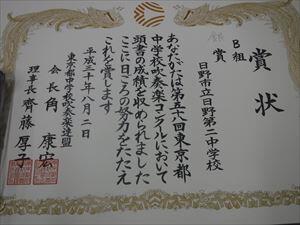 賞状
B組
銀賞
日野市立日野第二中学校
あなたがたは第五十八回東京都
中学校吹奏楽コンクールにおいて
頭書の成績を収められました
ここに日ごろの努力をたたえ
これを賞します
平成三十年八月二日
東京都中学校吹奏楽連盟
会長 角 康宏
理事長 齊藤厚子